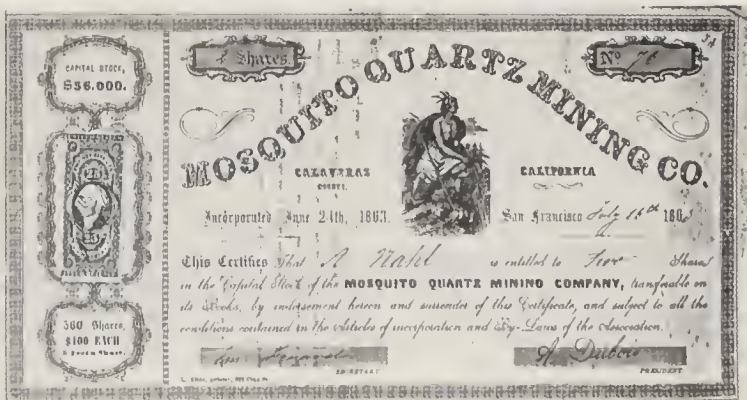 CAPITAL STOCK,
$36.000.
360 Shares,
$100 EACH
Shares.
No 76
MOSQUITO QUARTZ MINING CO.
CALAVERAS
COUNTY.
CALIFORNIA
Incorporated June 24th, 1863.
San Francisco July 15th 186
This Certifies That A Nahl is entitled to Shares
in the Capital Stock of the MOSQUITO QUARTZ MINING COMPANY, transferable on
its Books, by indorsement hereon and surrender of this Certificate, and subject to all the
conditions contained in the Articles of incorporation and By-Laws of the Association.
A. Dubois
SECRETARY
PRESIDENT